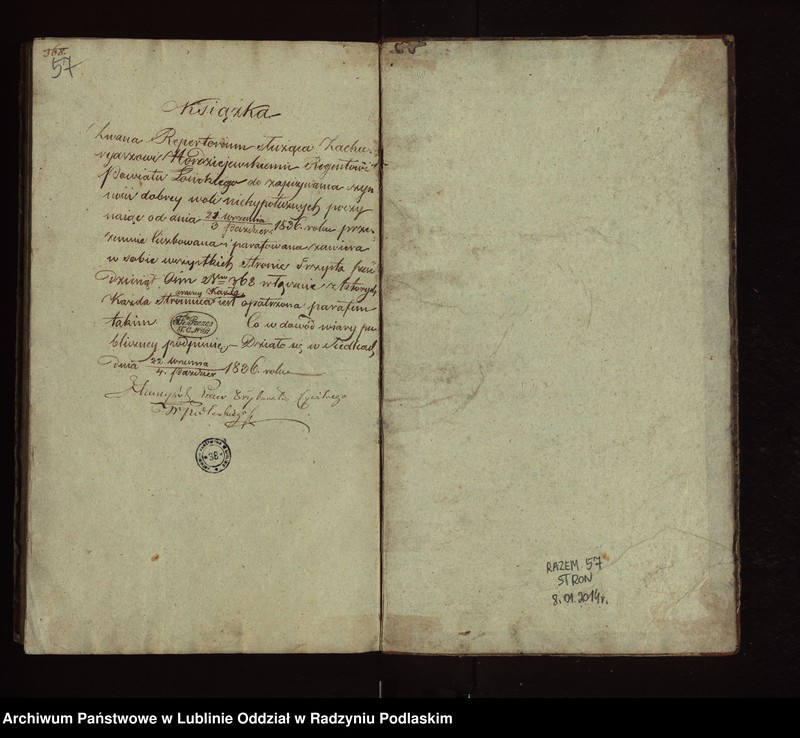 368.
57
Książka
Zwana Repertorium służąca Zacha-
ryaszowi Hordziejewskiemu Regentowi
Powiatu Łosickiego do zapisywania czyn
ności dobrey woli niehypotecznych poczy
naiąc od dnia 21 Września / 3 Paździer. 1836. roku prze-
zemnie liczbowana i parafowana zawiera
w sobie wszystkich Stronic Trzysta
368 włącznie z których
Każda Stronnica iest opatrzona parafem
takim Co w dowód wiary pu
bliczney podpisuię – Działo się w Siedlcach
dnia 22 Września / 4. Paździer 1836. roku
Podlaskiego
38
RAZEM 57
STRON
8.01.2014r.
Archiwum Państwowe w Lublinie Oddział w Radzyniu Podlaskim